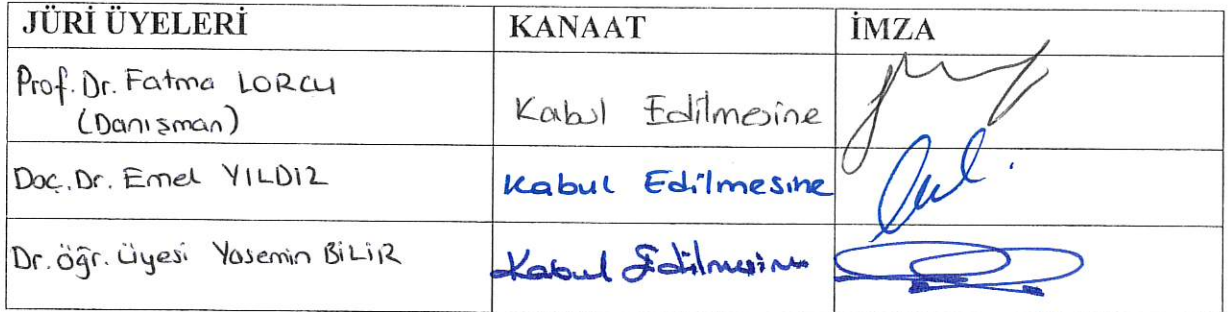 JÜRİ ÜYELERİ KANAAT İMZA
Prof. Dr. Fatma LORCU
(Danışman)
Kabul Edilmesine
Doç. Dr. Emel YILDIZ Kabul Edilmesine
Dr. öğr. üyesi Yasemin BİLİR Kabul Edilmesine